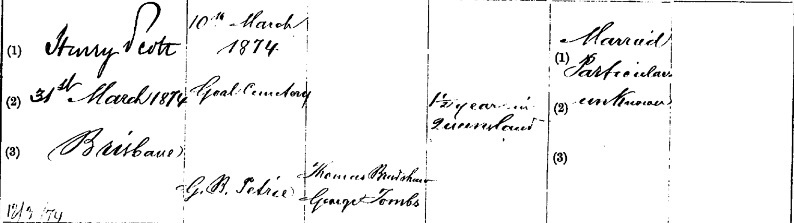 (1) Henry Scott
(2) 31st March 1874
(3) Brisbane
12/3/74
10th March
1874
Goal Cemetery
G. B. Petrie
Thomas Bradshaw
George Tombs
1½ year in
Queensland
(1) Married
Particulars
(2) unknown
(3)